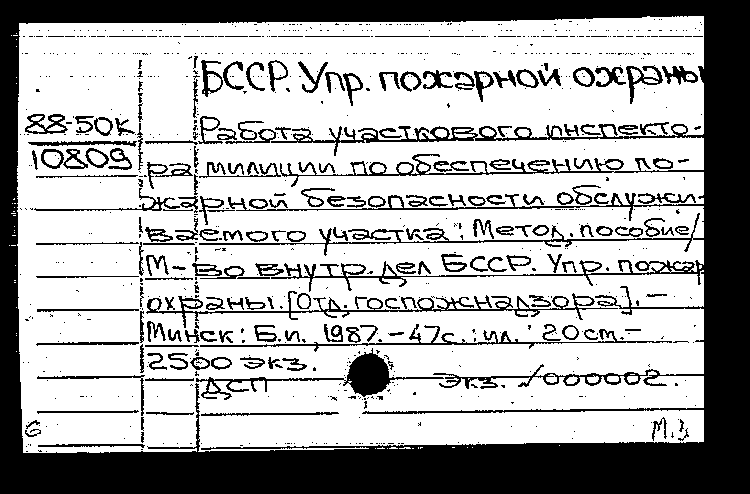 БССР. Упр. пожарной охраны
88-50к
10809
Работа участкового инспекто-
ра милиции по обеспечению по-
жарной безопасности обслужи-
ваемого участка: Метод. пособие/
М-во внутр. дел БССР. Упр. пожар
охраны. [Отд. госпожнадзора]. —
Минск: Б.и., 1987. — 47с.: ил.; 20см. —
2500 экз.
ДСП
Экз. №000002.
6